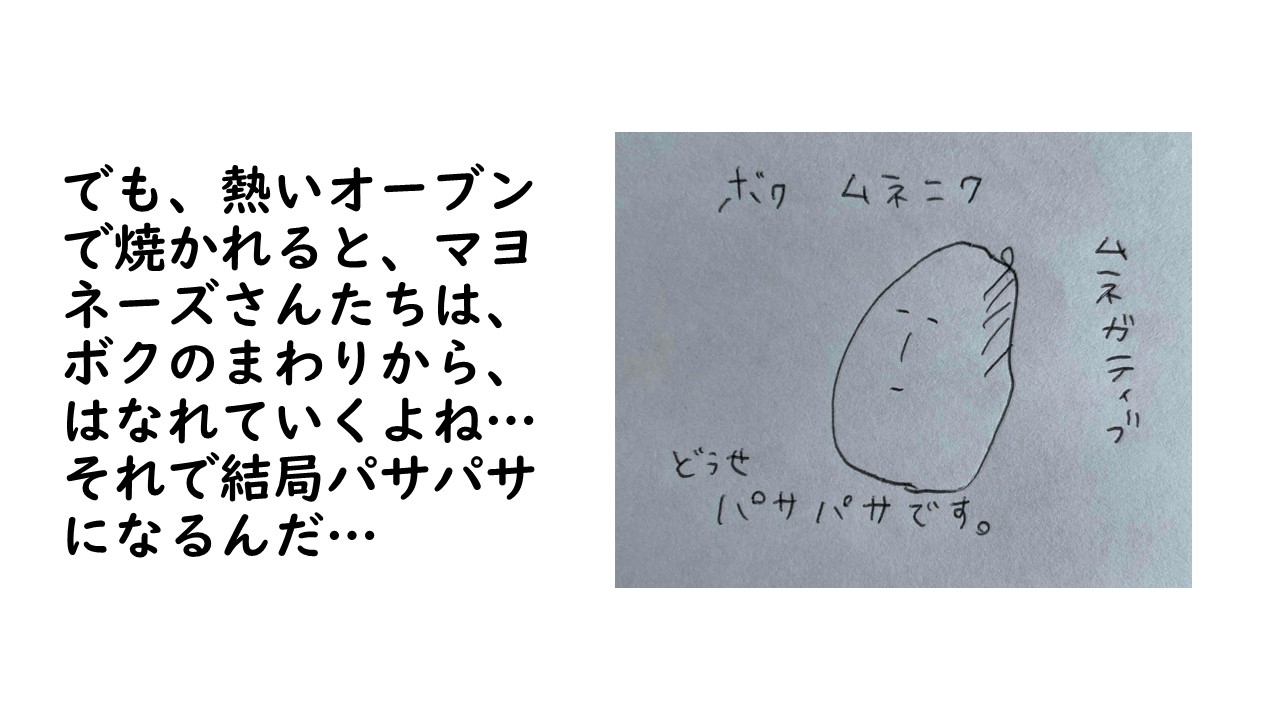 でも、熱いオーブン
で焼かれると、マヨ
ネーズさんたちは、
ボクのまわりから、
はなれていくよね…
それで結局パサパサ
になるんだ…
ボク ムネニク
ムネガティブ
どうせ
パサパサです。